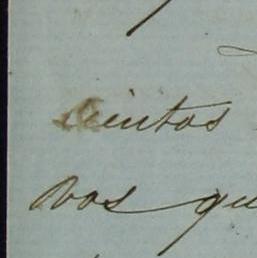 cientos
vos qu